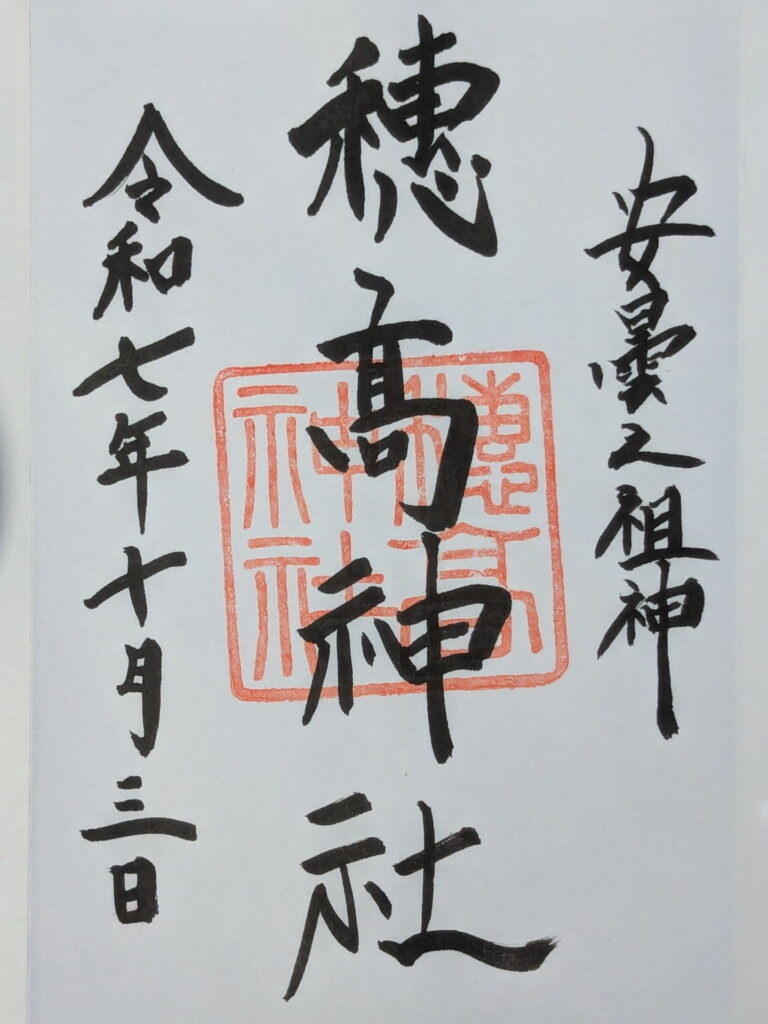 安曇之祖神
穂髙神社
穂高神社
令和七年十月三日